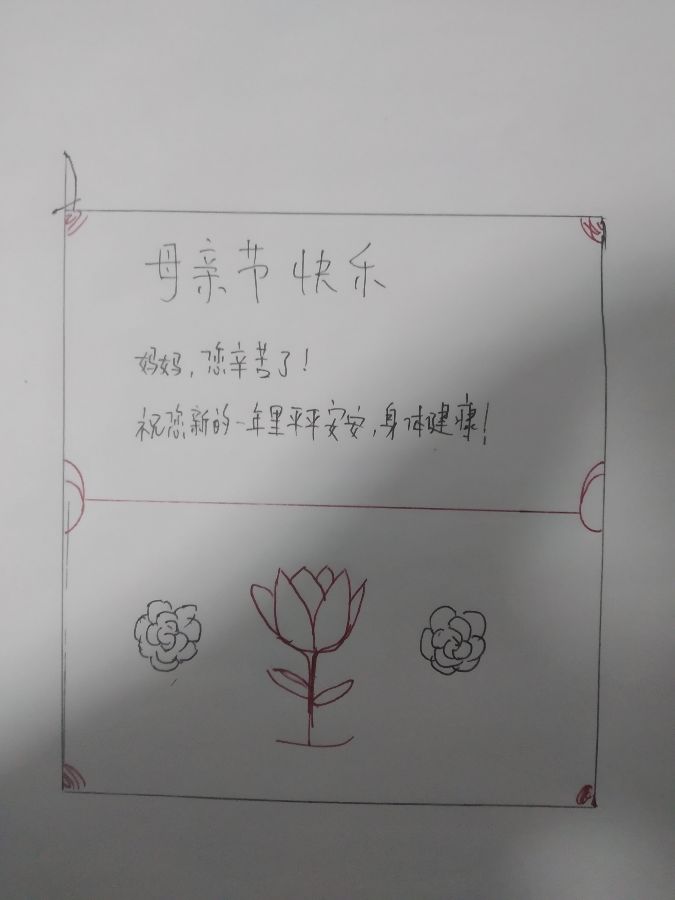 母亲节快乐
妈妈,您辛苦了!
祝您新的一年里平平安安,身体健康!